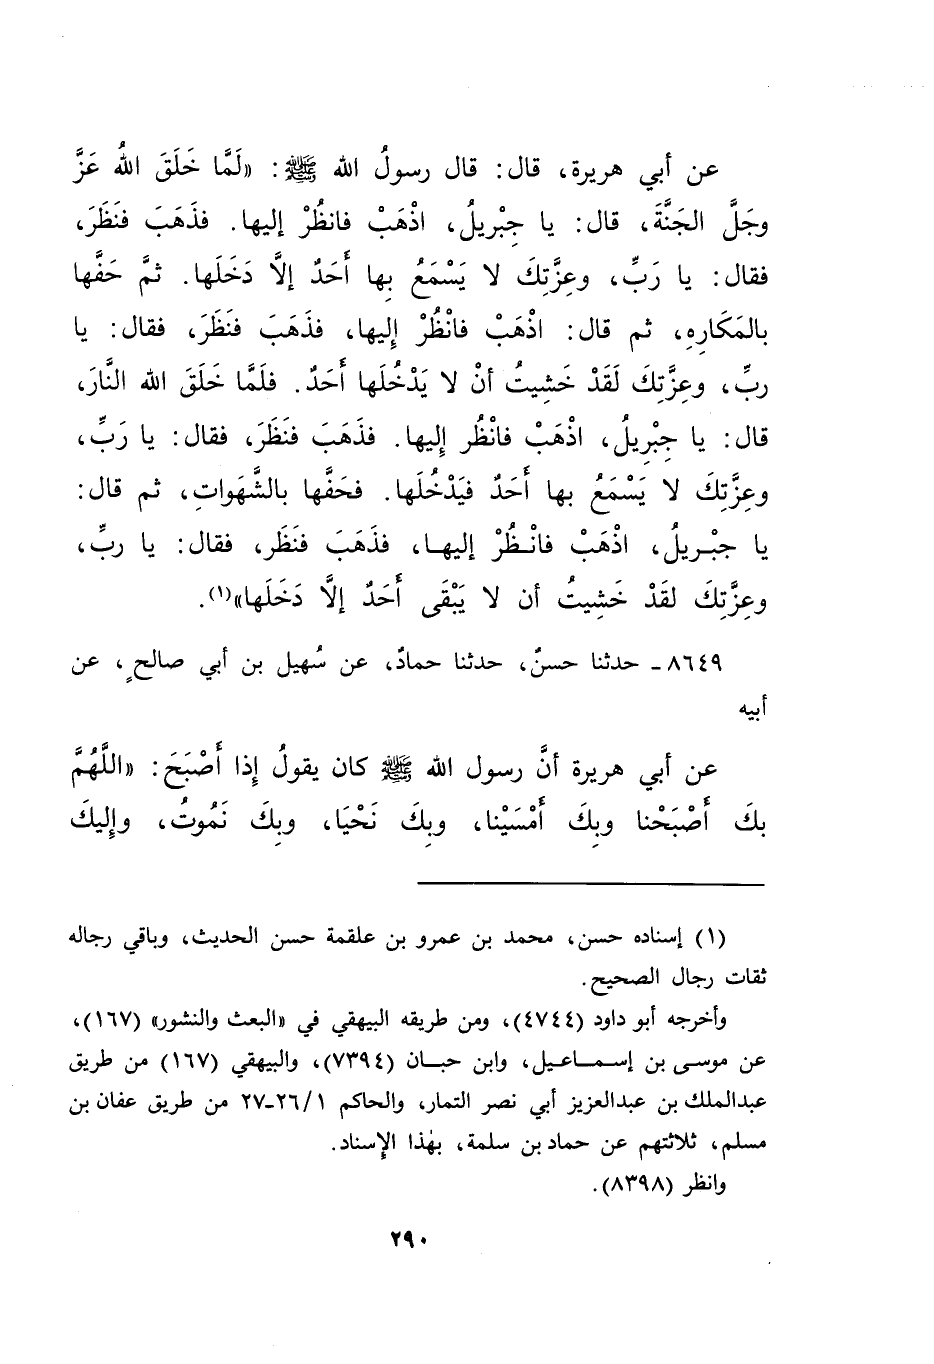 عن أبي هريرة، قال: قال رسولُ الله ﷺ: «لَمَّا خَلَقَ اللهُ عَزَّ
وجَلَّ الجَنَّةَ، قال: يا جِبْريلُ، اذْهَبْ فانظُرْ إليها. فذَهَبَ فنَظَرَ،
فقال: يا رَبِّ، وعِزَّتِكَ لا يَسْمَعُ بِها أَحَدٌ إلَّا دَخَلَها. ثمَّ حَفَّها
بالمَكَارِهِ، ثم قال: اذْهَبْ فانْظُرْ إِليها، فذَهَبَ فنَظَرَ، فقال: يا
ربِّ، وعِزَّتِكَ لَقَدْ خَشِيتُ أنْ لا يَدْخُلَها أَحَدٌ. فلَمَّا خَلَقَ الله النَّارَ،
قال: يا جِبْرِيلُ، اذْهَبْ فانْظُر إِليها. فذَهَبَ فنَظَرَ، فقال: يا رَبِّ،
وعِزَّتِكَ لا يَسْمَعُ بها أَحَدٌ فيَدْخُلَها. فحَفَّها بالشَّهَواتِ، ثم قال:
يا جبْريلُ، اذْهَبْ فانْظُرْ إليها، فذَهَبَ فنَظَر، فقال: يا ربِّ،
وعِزَّتِكَ لقَدْ خَشِيتُ أن لا يَبْقَى أَحَدٌ إلَّا دَخَلَها»(١).
٨٦٤٩ـ حدثنا حسنٌ، حدثنا حمادٌ، عن سُهيل بن أبي صالحٍ، عن
أبيه
عن أبي هريرة أنَّ رسول الله ﷺ كان يقولُ إِذا أَصْبَحَ: «اللَّهُمَّ
بكَ أَصْبَحْنا وبِكَ أَمْسَيْنا، وبِكَ نَحْيَا، وبِكَ نَمُوتُ، وإِليكَ
(١) إسناده حسن، محمد بن عمرو بن علقمة حسن الحديث، وباقي رجاله
ثقات رجال الصحيح.
وأخرجه أبو داود (٤٧٤٤)، ومن طريقه البيهقي في «البعث والنشور» (١٦٧)،
عن موسى بن إسماعيل، وابن حبان (٧٣٩٤)، والبيهقي (١٦٧) من طريق
عبدالملك بن عبدالعزيز أبي نصر التمار، والحاكم ٢٦/١ـ٢٧ من طريق عفان بن
مسلم، ثلاثتهم عن حماد بن سلمة، بهٰذا الإسناد.
وانظر (٨٣٩٨).
٢٩٠